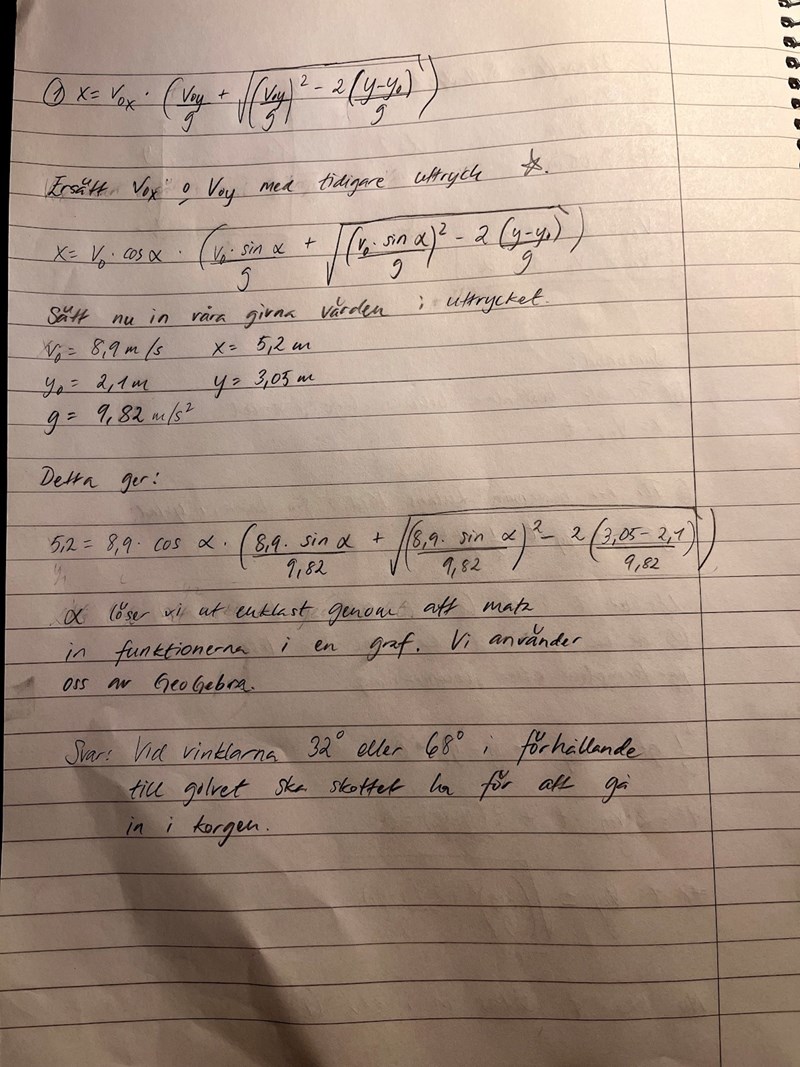 ① x = V₀ₓ · (V₀y/g + √((V₀y/g)² - 2(y-y₀)/g))
Ersätt V₀ₓ o V₀y med tidigare uttryck ☆.
x = V₀ · cos α · (V₀ · sin α/g + √((V₀ · sin α/g)² - 2(y-y₀)/g))
Sätt nu in våra givna värden i uttrycket.
V₀ = 8,9 m/s x = 5,2 m
y₀ = 2,1 m y = 3,05 m
g = 9,82 m/s²
Detta ger:
5,2 = 8,9 · cos α · (8,9 · sin α/9,82 + √((8,9 · sin α/9,82)² - 2(3,05-2,1/9,82)))
α löser vi ut enklast genom att mata
in funktionerna i en graf. Vi använder
oss av GeoGebra.
Svar: Vid vinklarna 32° eller 68° i förhållande
till golvet ska skottet ha för att gå
in i korgen.